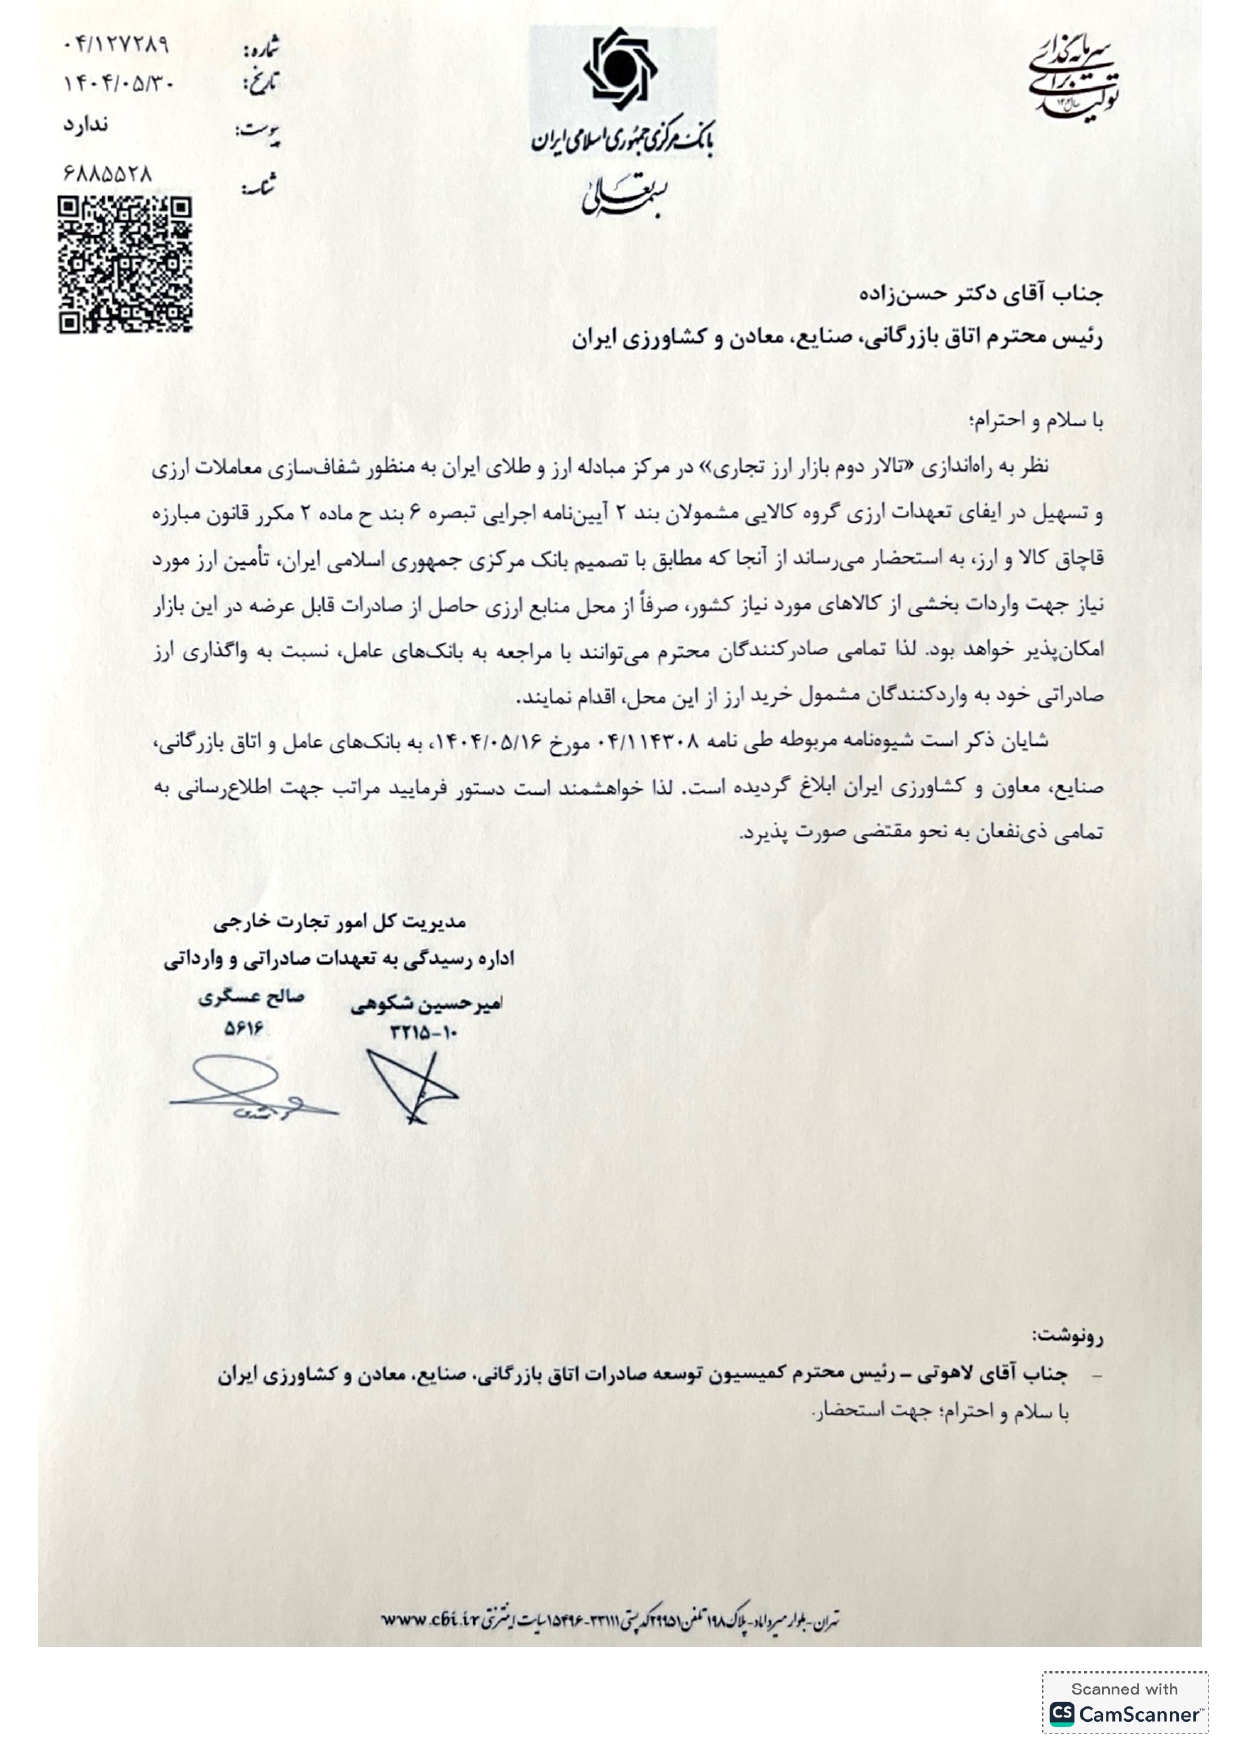 سرمایه‌گذاری
برای
تولید
سال ۱۴۰۴
بانک مرکزی جمهوری اسلامی ایران
بسمه تعالی
شماره: ۰۴/۱۲۷۲۸۹
تاریخ: ۱۴۰۴/۰۵/۳۰
پیوست: ندارد
شناسه: ۶۸۸۵۵۲۸
جناب آقای دکتر حسن‌زاده
رئیس محترم اتاق بازرگانی، صنایع، معادن و کشاورزی ایران
با سلام و احترام؛
نظر به راه‌اندازی «تالار دوم بازار ارز تجاری» در مرکز مبادله ارز و طلای ایران به منظور شفاف‌سازی معاملات ارزی
و تسهیل در ایفای تعهدات ارزی گروه کالایی مشمولان بند ۲ آیین‌نامه اجرایی تبصره ۶ بند ح ماده ۲ مکرر قانون مبارزه
قاچاق کالا و ارز، به استحضار می‌رساند از آنجا که مطابق با تصمیم بانک مرکزی جمهوری اسلامی ایران، تأمین ارز مورد
نیاز جهت واردات بخشی از کالاهای مورد نیاز کشور، صرفاً از محل منابع ارزی حاصل از صادرات قابل عرضه در این بازار
امکان‌پذیر خواهد بود. لذا تمامی صادرکنندگان محترم می‌توانند با مراجعه به بانک‌های عامل، نسبت به واگذاری ارز
صادراتی خود به واردکنندگان مشمول خرید ارز از این محل، اقدام نمایند.
شایان ذکر است شیوه‌نامه مربوطه طی نامه ۰۴/۱۱۴۳۰۸ مورخ ۱۴۰۴/۰۵/۱۶، به بانک‌های عامل و اتاق بازرگانی،
صنایع، معاون و کشاورزی ایران ابلاغ گردیده است. لذا خواهشمند است دستور فرمایید مراتب جهت اطلاع‌رسانی به
تمامی ذی‌نفعان به نحو مقتضی صورت پذیرد.
مدیریت کل امور تجارت خارجی
اداره رسیدگی به تعهدات صادراتی و وارداتی
امیرحسین شکوهی صالح عسگری
۳۲۱۵-۱۰ ۵۶۱۶
رونوشت:
- جناب آقای لاهوتی – رئیس محترم کمیسیون توسعه صادرات اتاق بازرگانی، صنایع، معادن و کشاورزی ایران
با سلام و احترام؛ جهت استحضار.
تهران-بلوار میرداماد-پلاک ۱۹۸ تلفن ۲۹۹۵۱ کد پستی ۳۳۱۱۱-۱۵۴۹۶ سایت اینترنتی www.cbi.ir
Scanned with
CS CamScanner